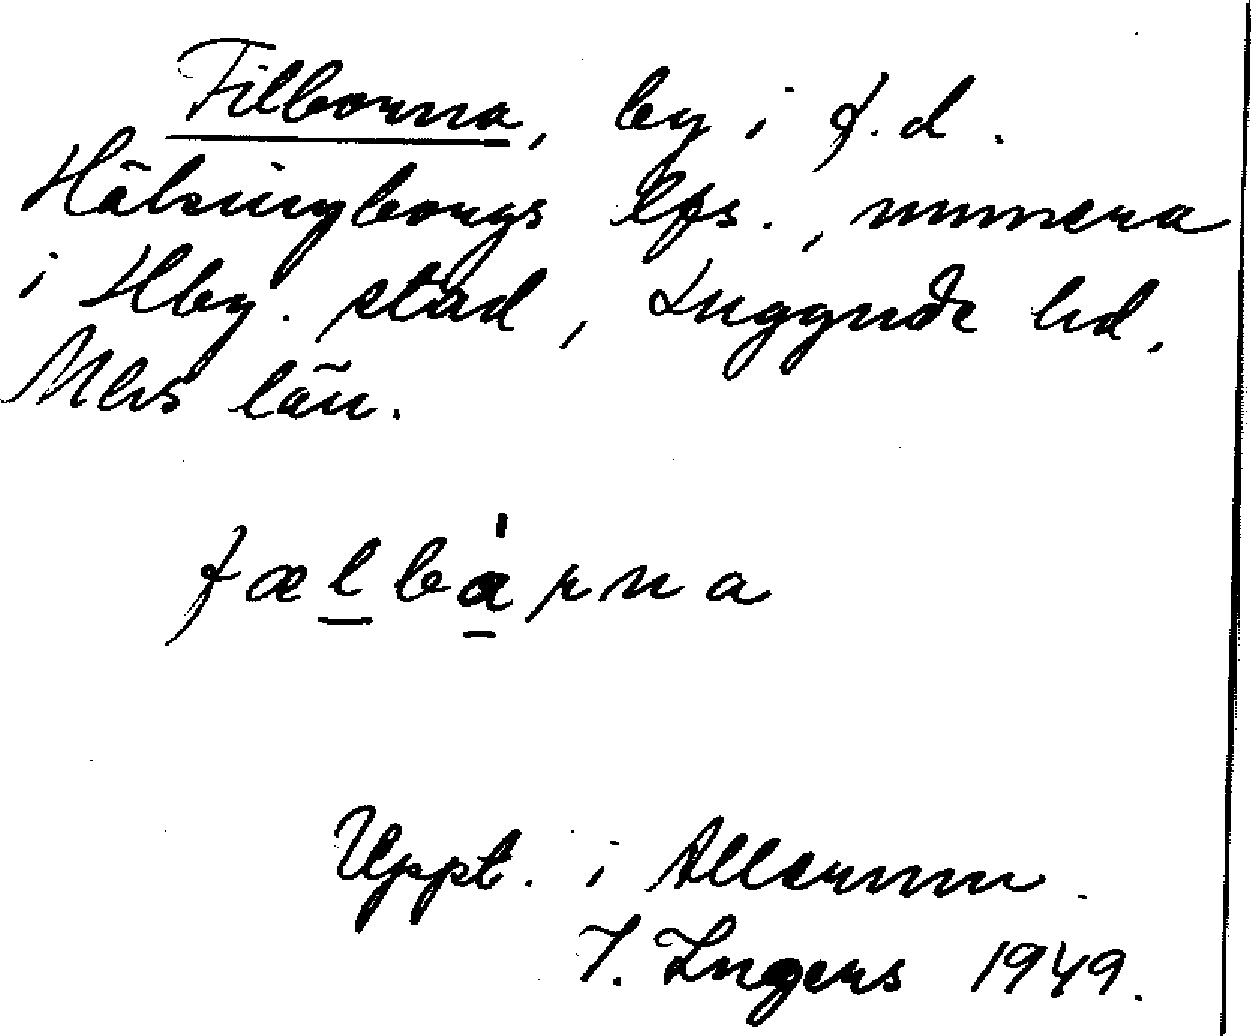 Filborna, by i f.d.
Hälsingborgs lfs., numera
i Hbg. stad, Luggude hd,
Mhs län.
fælbàrna
Uppt. i Allerum.
I. Ingers 1949.